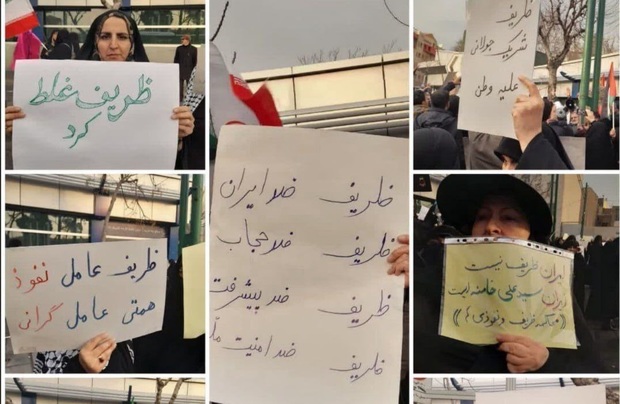 ظریف غلط
کرد
ظریف عامل نفوذ
همتی عامل گرانی
ظریف ضد ایران
ظریف ضد حجاب
ظریف ضد پیشرفت
ظریف ضد امنیت
ظریف
شریک جولانی
علیه وطن
ایران ظریف نیست
ایران سید علی خامنه ایست